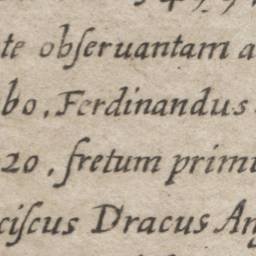 te obſeruantam a
bo, Ferdinandus
20, fretum primu
ciſcus Dracus An